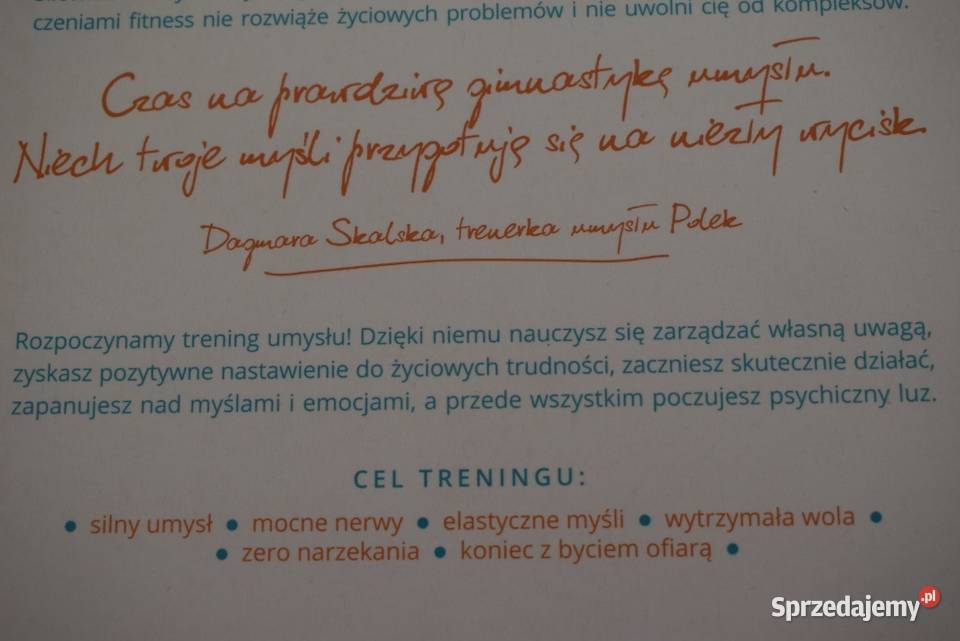 czeniami fitness nie rozwiąże życiowych problemów i nie uwolni cię od kompleksów.
Czas na prawdziwą gimnastykę umysłu.
Niech twoje myśli przygotują się na niezły wycisk.
Dagmara Skalska, trenerka umysłu Polek
Rozpoczynamy trening umysłu! Dzięki niemu nauczysz się zarządzać własną uwagą,
zyskasz pozytywne nastawienie do życiowych trudności, zaczniesz skutecznie działać,
zapanujesz nad myślami i emocjami, a przede wszystkim poczujesz psychiczny luz.
CEL TRENINGU:
• silny umysł • mocne nerwy • elastyczne myśli • wytrzymała wola •
• zero narzekania • koniec z byciem ofiarą •
Sprzedajemy.pl